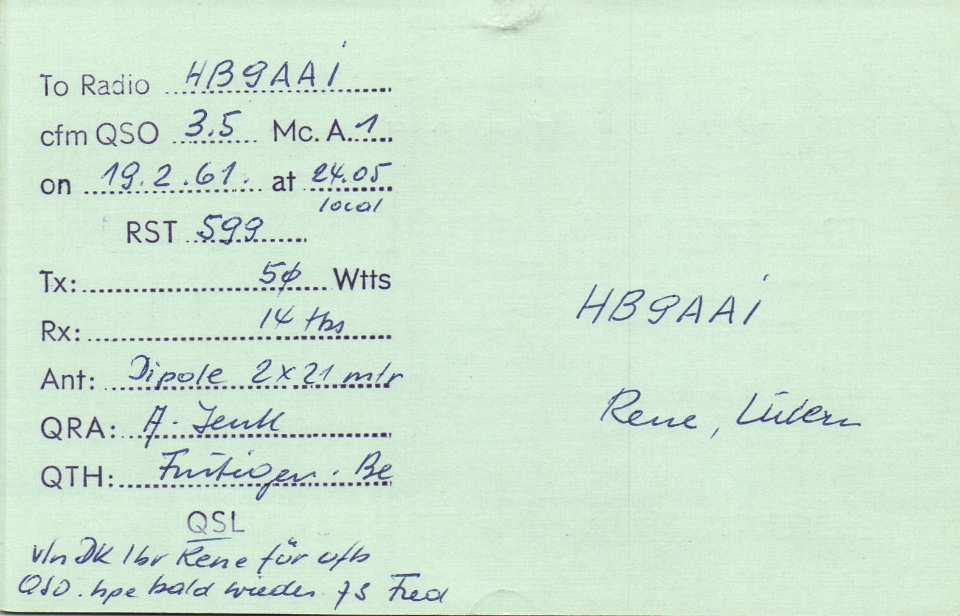 To Radio HB9AAi
cfm QSO 3.5 Mc. A.1
on 19.2.61. at 24.05
local
RST 599
Tx: 5ø Wtts
Rx: 14 tbs
Ant: Dipole 2x21 mtr
QRA: A. Jenk
QTH: Frutigen. Be
QSL
vln DK lbr Rene für ufb
QSO. hpe bald wieder. 73 Fred
HB9AAi
Rene,